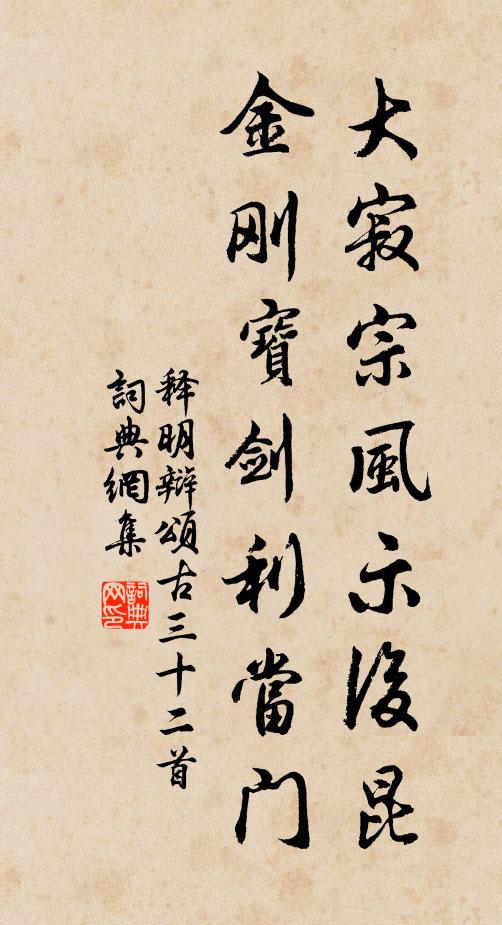 大寂宗風示後昆
金刚寶劍利當门
释明辯頌古三十二首
詞典網集
詞典网印